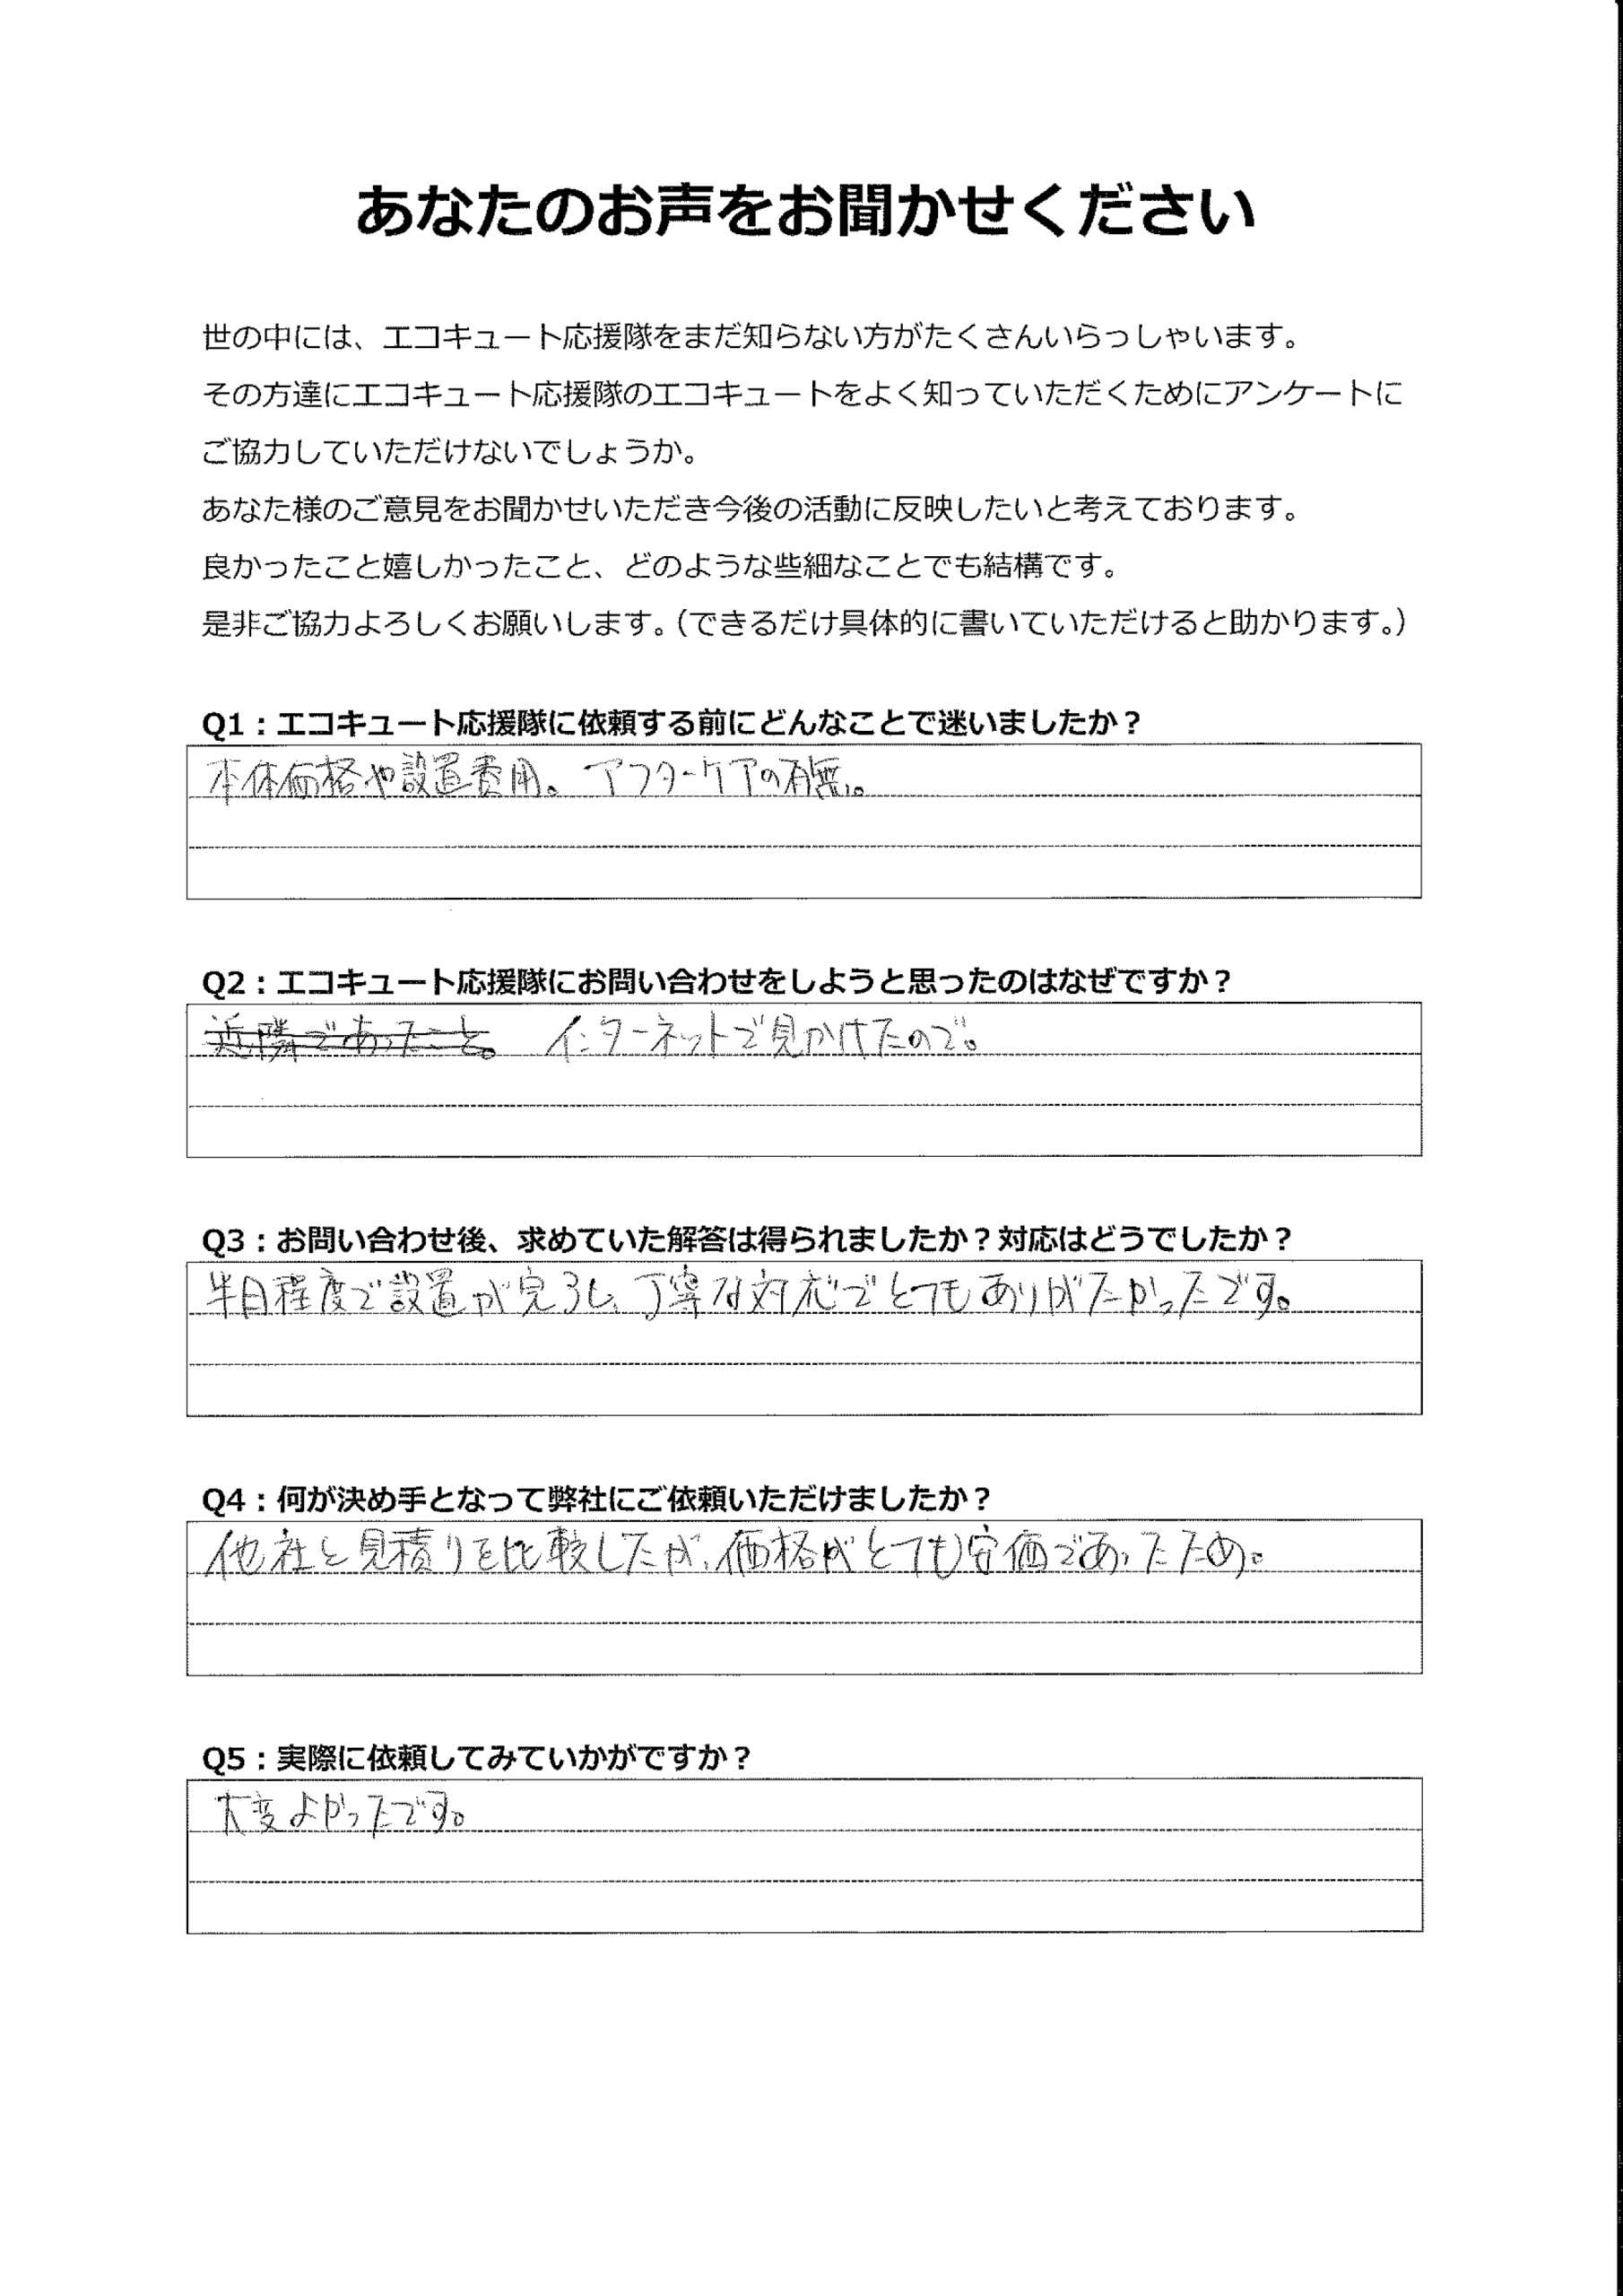 あなたのお声をお聞かせください
世の中には、エコキュート応援隊をまだ知らない方がたくさんいらっしゃいます。
その方達にエコキュート応援隊のエコキュートをよく知っていただくためにアンケートに
ご協力していただけないでしょうか。
あなた様のご意見をお聞かせいただき今後の活動に反映したいと考えております。
良かったこと嬉しかったこと、どのような些細なことでも結構です。
是非ご協力よろしくお願いします。（できるだけ具体的に書いていただけると助かります。）
Q1：エコキュート応援隊に依頼する前にどんなことで迷いましたか？
本体価格や設置費用。アフターケアの有無。
Q2：エコキュート応援隊にお問い合わせをしようと思ったのはなぜですか？
近隣であったこと。 インターネットで見かけたので。
Q3：お問い合わせ後、求めていた解答は得られましたか？対応はどうでしたか？
半日程度で設置が完了し、丁寧な対応でとてもありがたかったです。
Q4：何が決め手となって弊社にご依頼いただけましたか？
他社と見積りを比較したが、価格がとても安価であったため。
Q5：実際に依頼してみていかがですか？
大変よかったです。